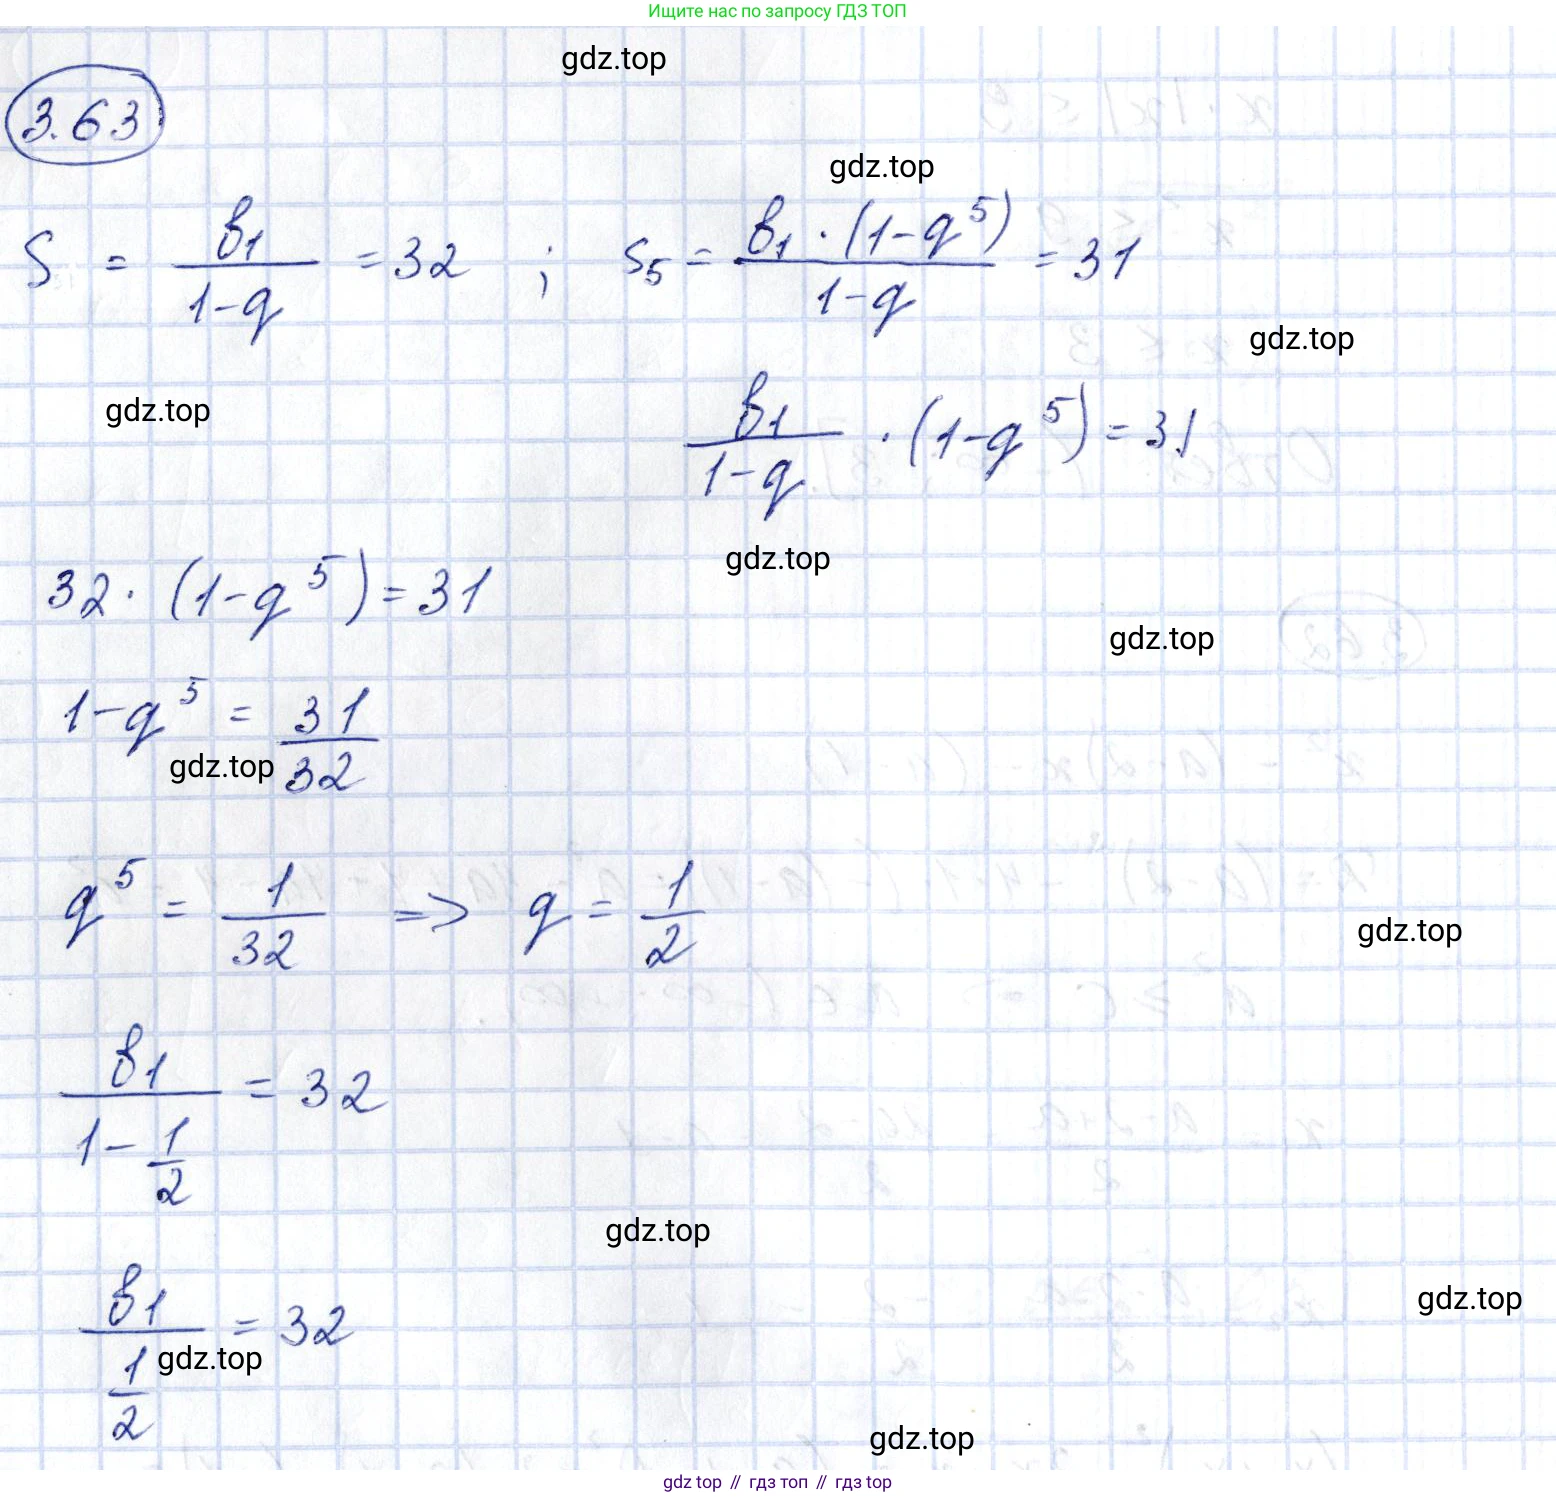 Ищите нас по запросу ГДЗ ТОП
gdz.top
3.63
gdz.top
S = b₁/(1-q) = 32 ; S₅ = b₁·(1-q⁵)/(1-q) = 31
gdz.top
gdz.top
b₁/(1-q) · (1-q⁵) = 31
gdz.top
32·(1-q⁵) = 31
gdz.top
1-q⁵ = 31/32
gdz.top
q⁵ = 1/32 => q = 1/2
gdz.top
b₁/(1-1/2) = 32
gdz.top
gdz.top
b₁/(1/2) = 32
gdz.top
gdz.top
gdz top // гдз топ // гдз top